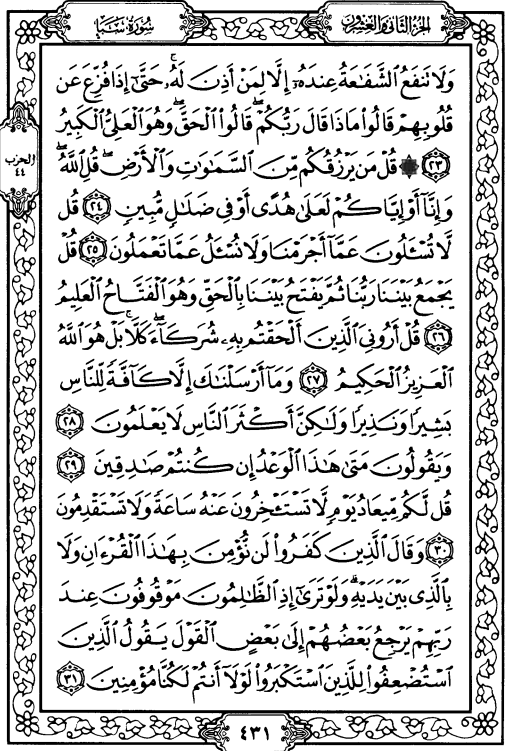 الجزء الثاني والعشرون
سورة سبإ
وَلَا تَنفَعُ ٱلشَّفَٰعَةُ عِندَهُۥٓ إِلَّا لِمَنْ أَذِنَ لَهُۥۚ حَتَّىٰٓ إِذَا فُزِّعَ عَن
قُلُوبِهِمْ قَالُوا۟ مَاذَا قَالَ رَبُّكُمْۖ قَالُوا۟ ٱلْحَقَّۖ وَهُوَ ٱلْعَلِىُّ ٱلْكَبِيرُ
٢٣ ۞ قُلْ مَن يَرْزُقُكُم مِّنَ ٱلسَّمَٰوَٰتِ وَٱلْأَرْضِۖ قُلِ ٱللَّهُۖ
وَإِنَّآ أَوْ إِيَّاكُمْ لَعَلَىٰ هُدًى أَوْ فِى ضَلَٰلٍ مُّبِينٍ ٢٤ قُل
لَّا تُسْـَٔلُونَ عَمَّآ أَجْرَمْنَا وَلَا نُسْـَٔلُ عَمَّا تَعْمَلُونَ ٢٥ قُلْ
يَجْمَعُ بَيْنَنَا رَبُّنَا ثُمَّ يَفْتَحُ بَيْنَنَا بِٱلْحَقِّ وَهُوَ ٱلْفَتَّاحُ ٱلْعَلِيمُ
٢٦ قُلْ أَرُونِىَ ٱلَّذِينَ أَلْحَقْتُم بِهِۦ شُرَكَآءَۖ كَلَّاۚ بَلْ هُوَ ٱللَّهُ
ٱلْعَزِيزُ ٱلْحَكِيمُ ٢٧ وَمَآ أَرْسَلْنَٰكَ إِلَّا كَآفَّةً لِّلنَّاسِ
بَشِيرًا وَنَذِيرًا وَلَٰكِنَّ أَكْثَرَ ٱلنَّاسِ لَا يَعْلَمُونَ ٢٨
وَيَقُولُونَ مَتَىٰ هَٰذَا ٱلْوَعْدُ إِن كُنتُمْ صَٰدِقِينَ ٢٩
قُل لَّكُم مِّيعَادُ يَوْمٍ لَّا تَسْتَـْٔخِرُونَ عَنْهُ سَاعَةً وَلَا تَسْتَقْدِمُونَ
٣٠ وَقَالَ ٱلَّذِينَ كَفَرُوا۟ لَن نُّؤْمِنَ بِهَٰذَا ٱلْقُرْءَانِ وَلَا
بِٱلَّذِى بَيْنَ يَدَيْهِۗ وَلَوْ تَرَىٰٓ إِذِ ٱلظَّٰلِمُونَ مَوْقُوفُونَ عِندَ
رَبِّهِمْ يَرْجِعُ بَعْضُهُمْ إِلَىٰ بَعْضٍ ٱلْقَوْلَ يَقُولُ ٱلَّذِينَ
ٱسْتُضْعِفُوا۟ لِلَّذِينَ ٱسْتَكْبَرُوا۟ لَوْلَآ أَنتُمْ لَكُنَّا مُؤْمِنِينَ ٣١
الحزب
٤٤
٤٣١